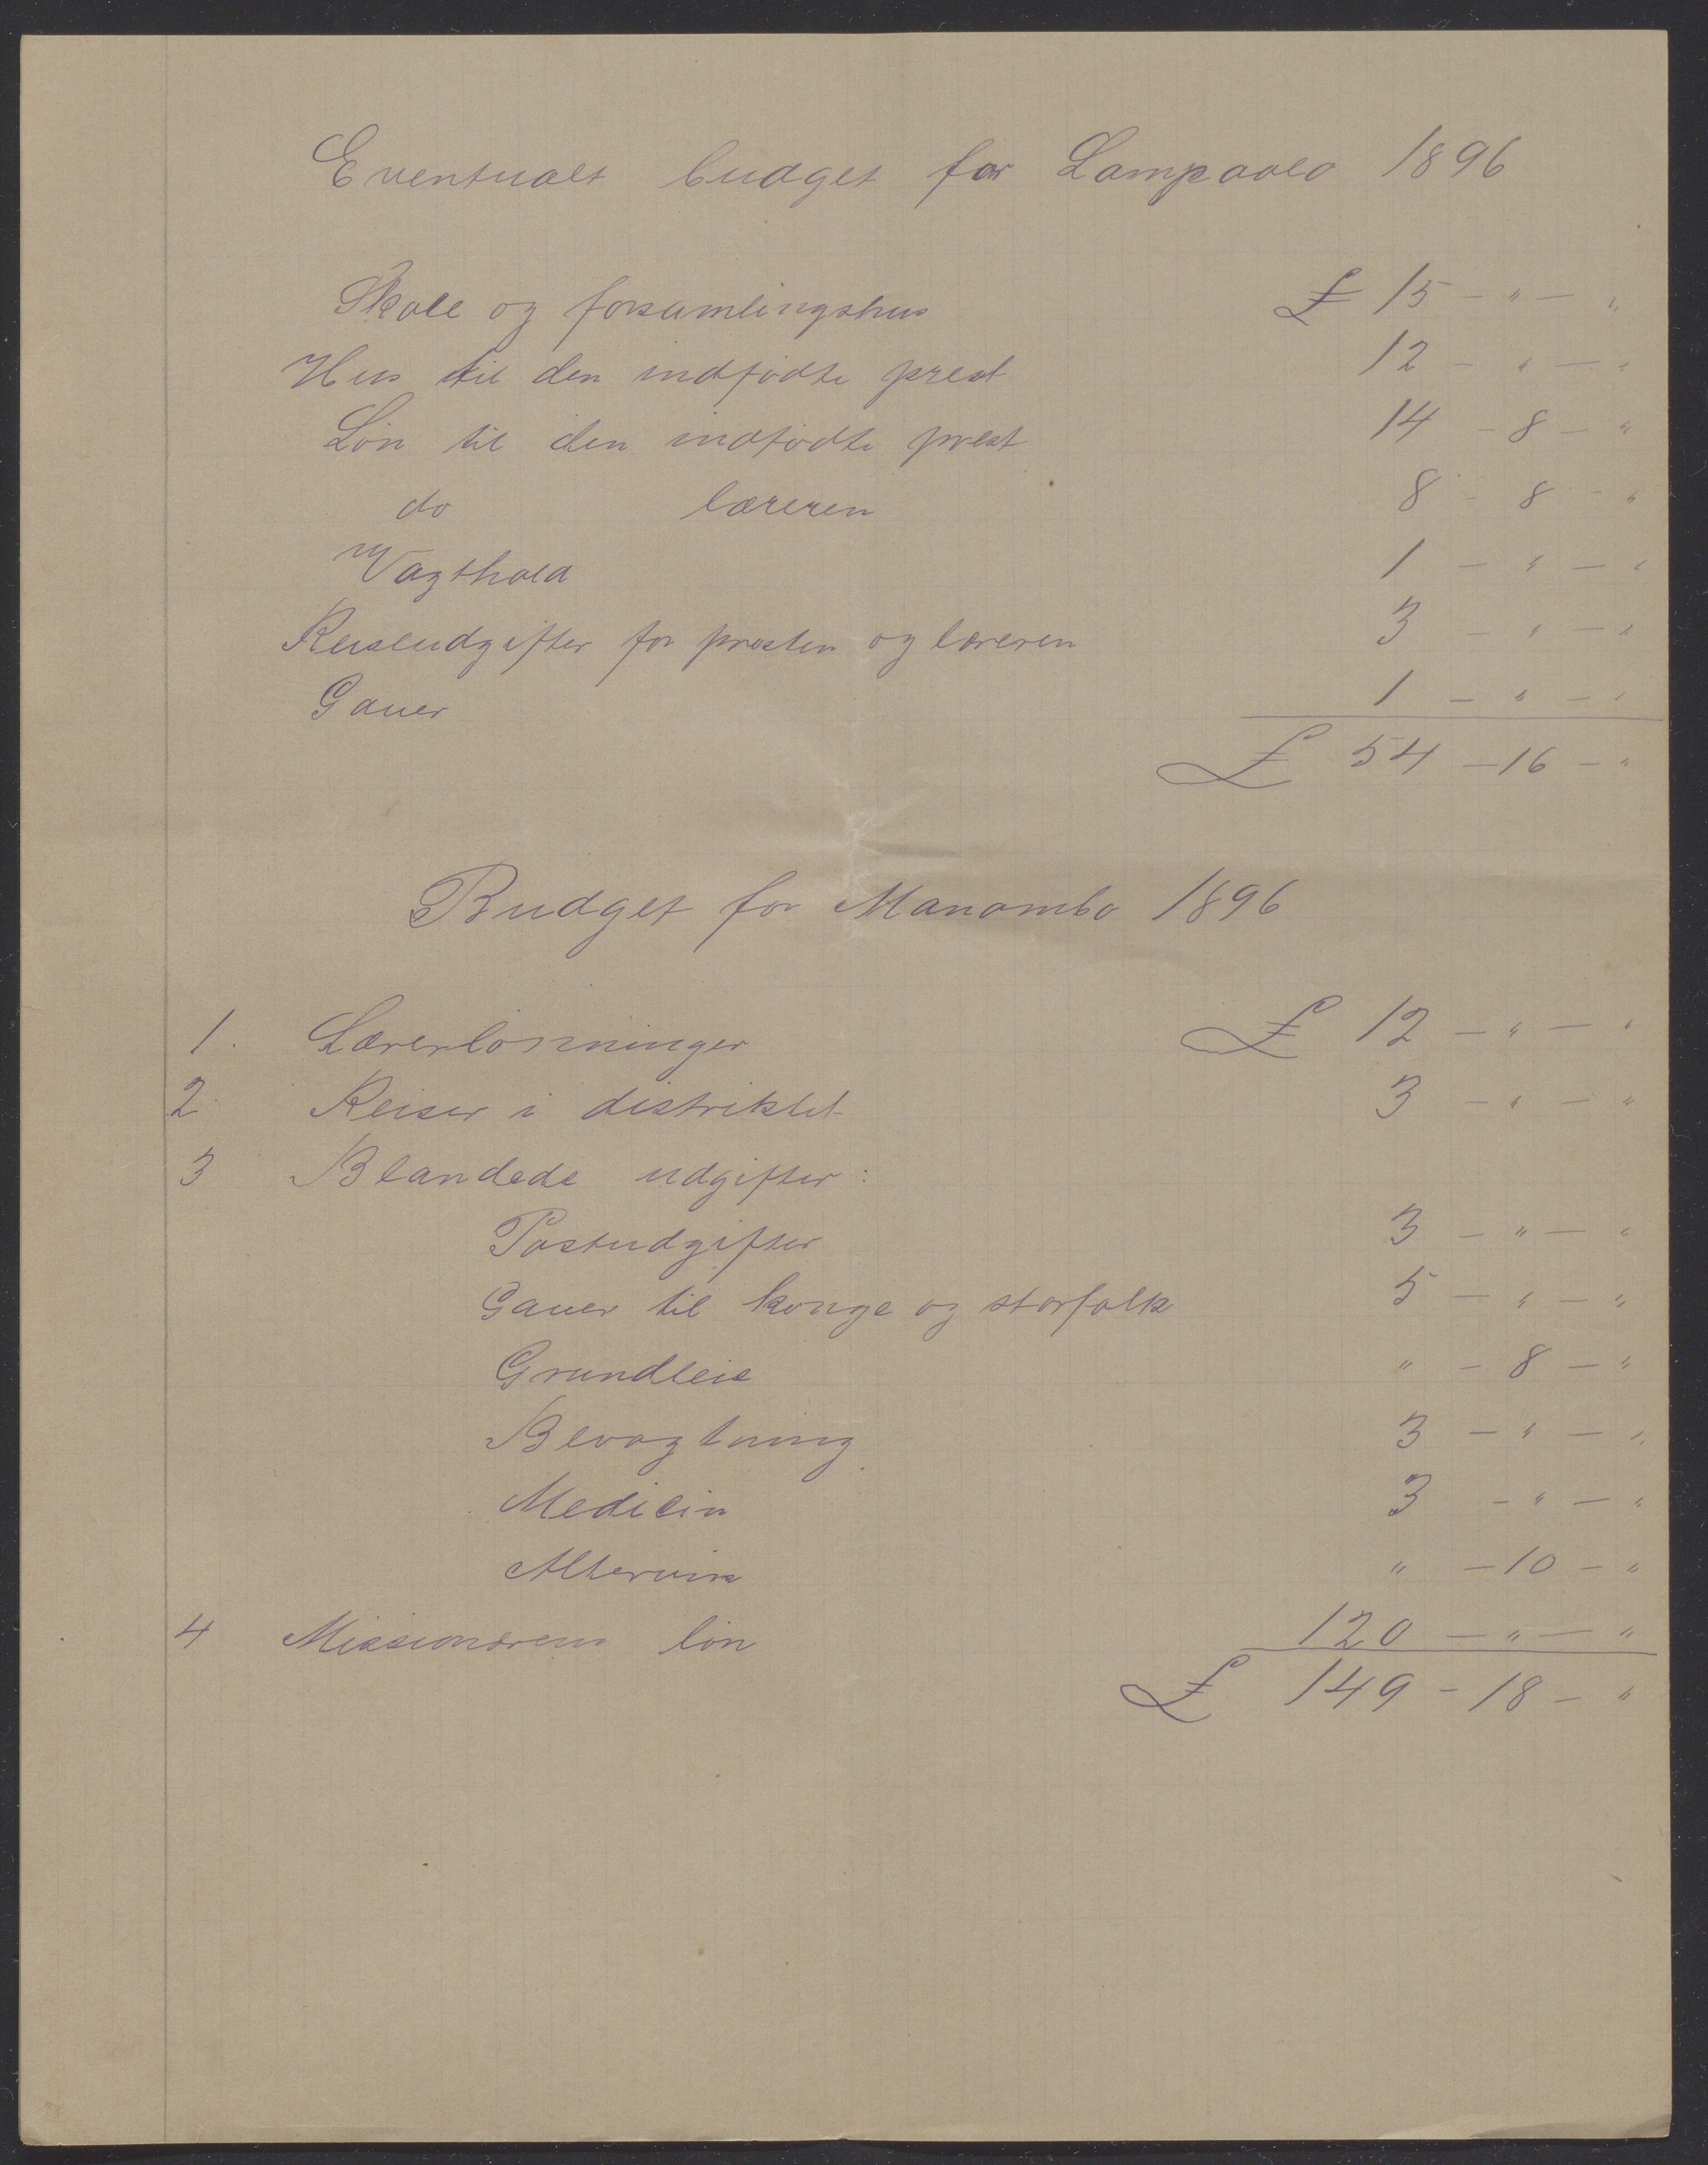 Eventuelt budget for Lampaolo 1896
Skole og forsamlingshus £ 15 - " - "
Hus til den indfødte prest 12 - " - "
Løn til den indfødte prest 14 - 8 - "
do læreren 8 - 8 - "
Vagthold 1 - " - "
Reiseudgifter for presten og læreren 3 - " - "
Gaver 1 - " - "
£ 54 - 16 - "
Budget for Manombo 1896
1. Lærerlønninger £ 12 - " - "
2. Reiser i distriktet 3 - " - "
3 Blandede udgifter:
Postudgifter 3 - " - "
Gaver til konge og storfolk 5 - " - "
Grundleie " - 8 - "
Bevogtning 3 - " - "
Medicin 3 - " - "
Altervin " - 10 - "
4 Missionærens løn 120 - " - "
£ 149 - 18 - "